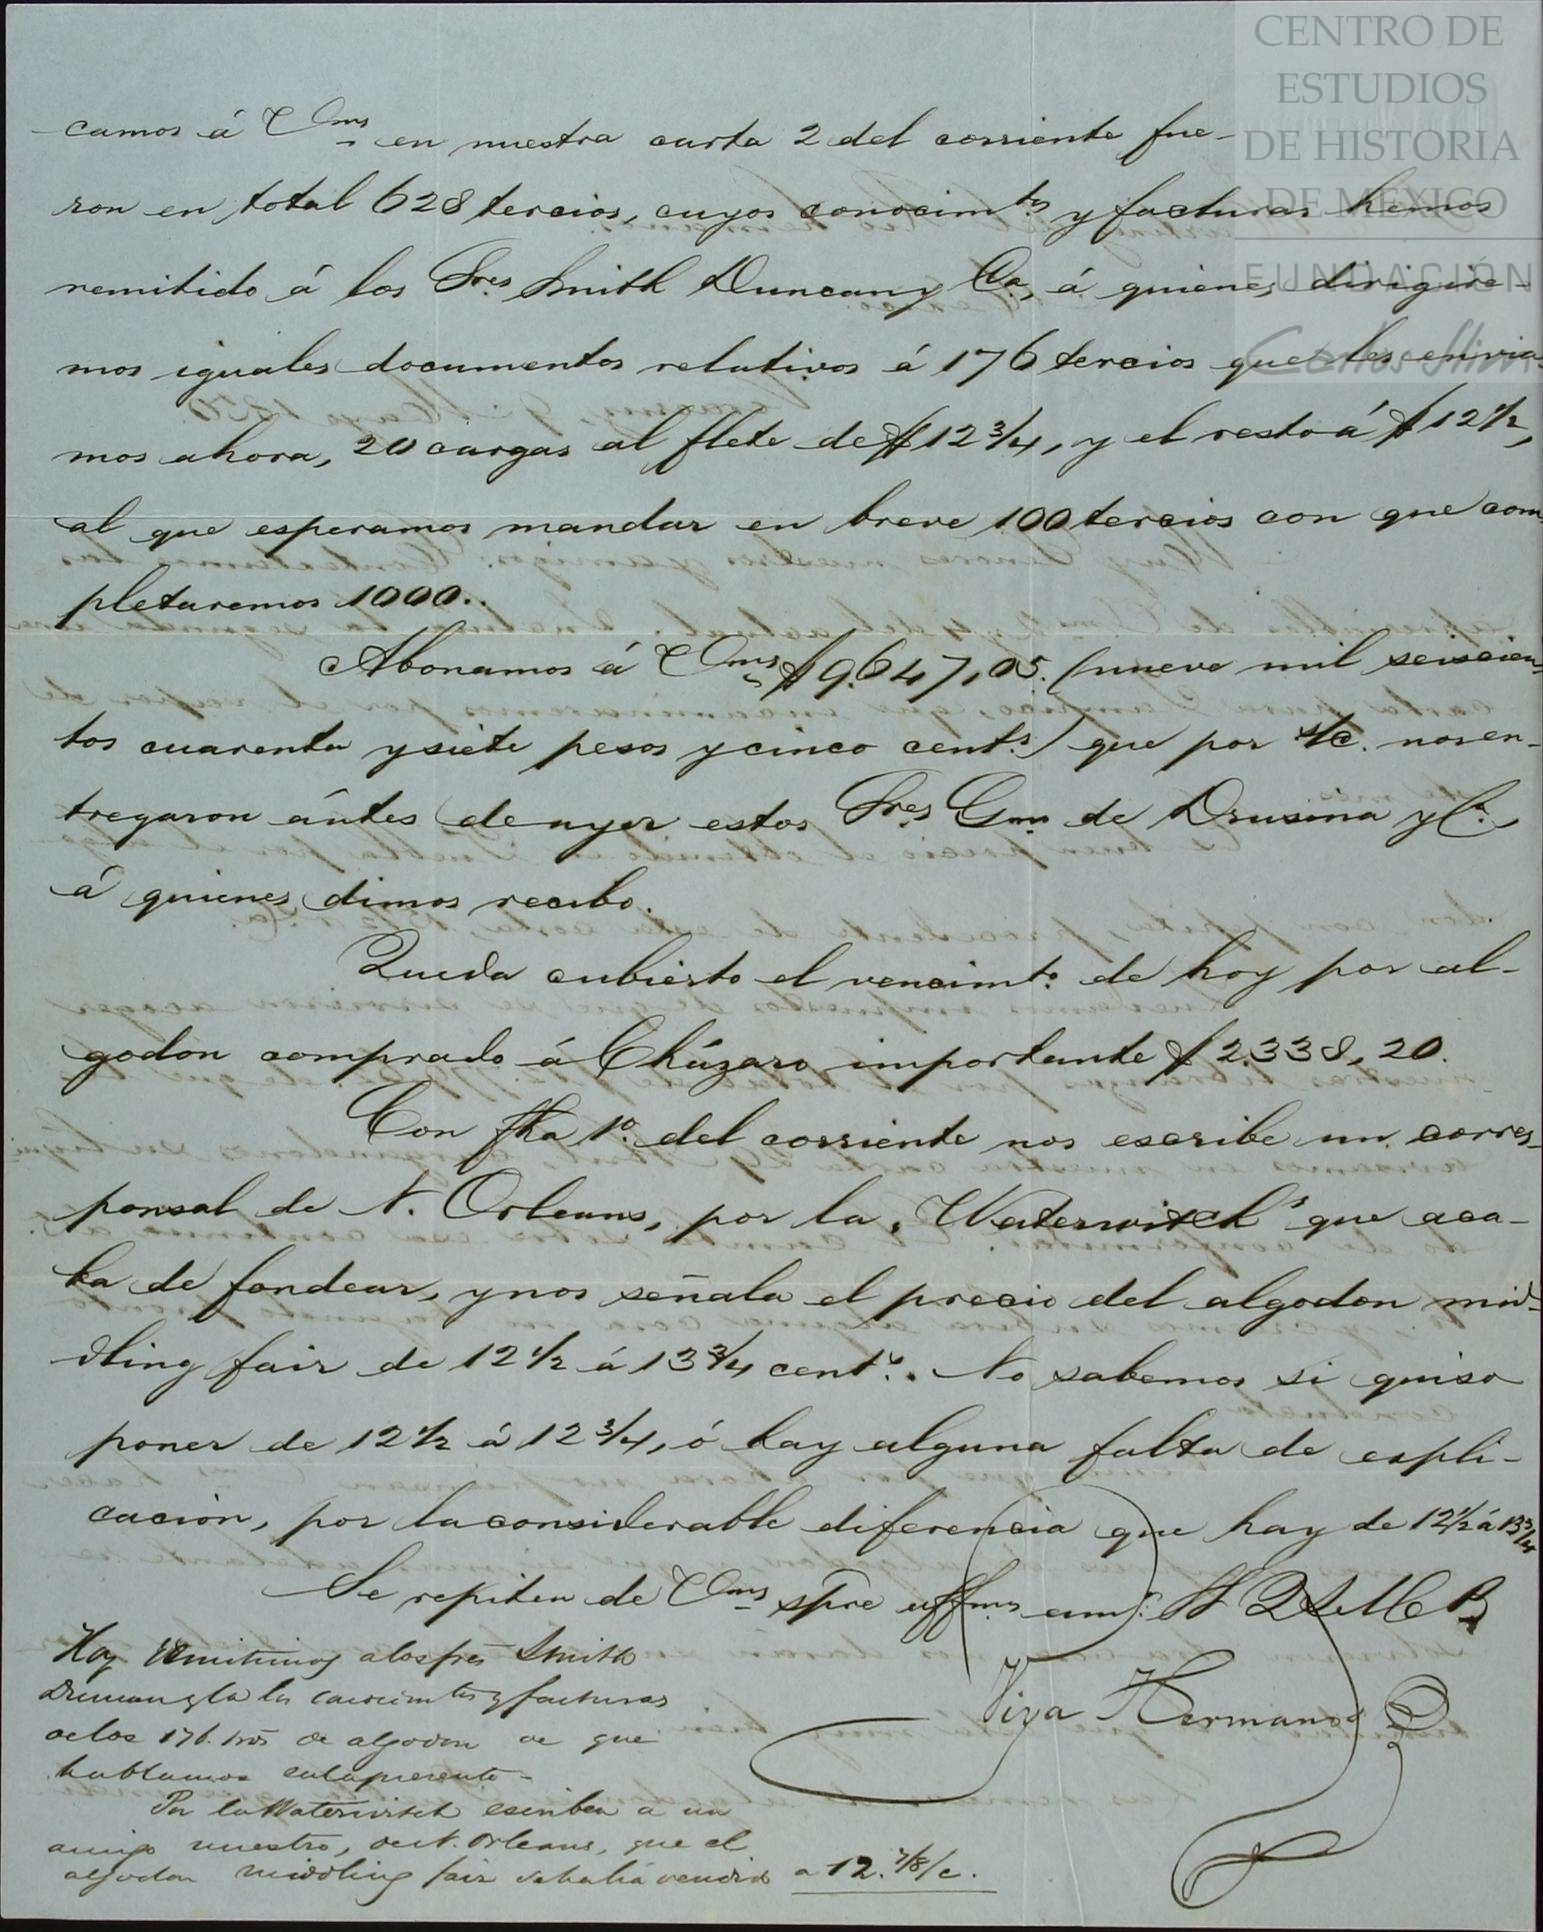 CENTRO DE
ESTUDIOS
DE HISTORIA
DE MEXICO
FUNDACIÓN
Carlos Slim
camos á Vms en nuestra carta 2 del corriente fue-
ron en total 628 tercios, cuyos conocimtos y facturas hemos
remitido á los Sres Smith Duncan y Ca, á quienes dirigire-
mos iguales documentos relativos á 176 tercios que les envia-
mos ahora, 20 cargas al flete de $12 3/4, y el resto á $12 1/2,
al que esperamos mandar en breve 100 tercios con que com-
pletaremos 1000..
Abonamos á Vms $9.647,05. (nueve mil seiscien-
tos cuarenta y siete pesos y cinco cents) que por s/c. nos en-
tregaron ántes de ayer estos Sres Gmo de Drusina y Ca.,
á quienes dimos recibo.
Queda cubierto el vencimto. de hoy por al-
godon comprado á Cházaro importante $2.338,20.
Con fha 1o. del corriente nos escribe un corres-
ponsal de N. Orleans, por la "Waterwitch" que aca-
ba de fondear, y nos señala el precio del algodon mid-
dling fair de 12 1/2 á 13 3/4 cents. No sabemos si quiso
poner de 12 1/2 á 12 3/4, ó hay alguna falta de espli-
cacion, por la considerable diferencia que hay de 12 1/2 á 13 3/4
Se repiten de Vms spre affmos ams. S Q S M B
Viya Hermanos
Hoy remitimos a los sres Smith
Duncan y Ca los conocimtos y facturas
de los 176. tros de algodon de que
hablamos en la presente-
Por la Waterwitch escriben a un
amigo nuestro, de N. Orleans, que el
algodon middling fair se habia vendido a 12. 7/8/c.